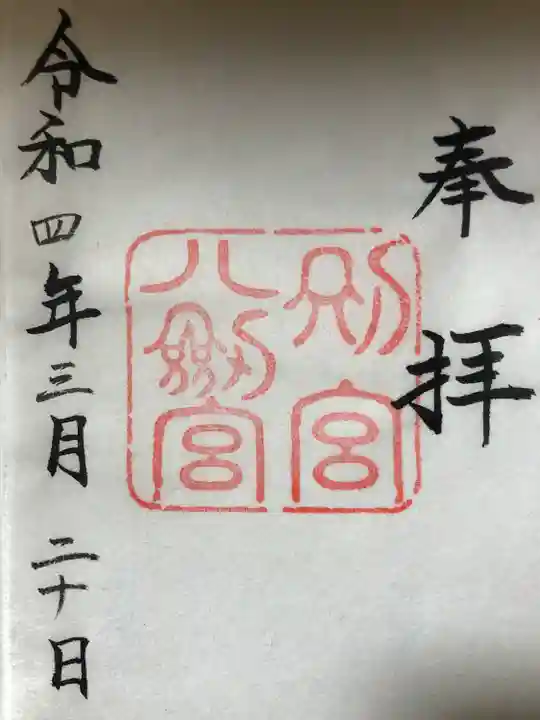 奉拝
別宮
八剱宮
令和四年三月二十日